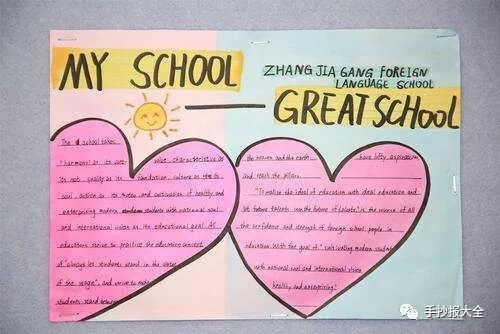 MY SCHOOL
ZHANG JIA GANG FOREIGN
LANGUAGE SCHOOL
GREAT SCHOOL
The school takes
"harmony as its core
voice characteristics as
its root quality as its foundation, culture as its
soul action as its motto and cultivation of healthy and
enterprising modern students with national soul
and international vision as its educational goal. All
educators strive to practice the education concept
of "always let students stand in the center
of the stage", and strive to make
students stand between
the heaven and the earth
have lofty aspiration
and reach the pillars.
"To realize the ideal of education with ideal education and
let future talents win the future of talents" is the of all
the confidence and strength of foreign school people in
education. With the goal of "cultivating modern students
with national soul and international vision
healthy and enterprising".
手抄报大全